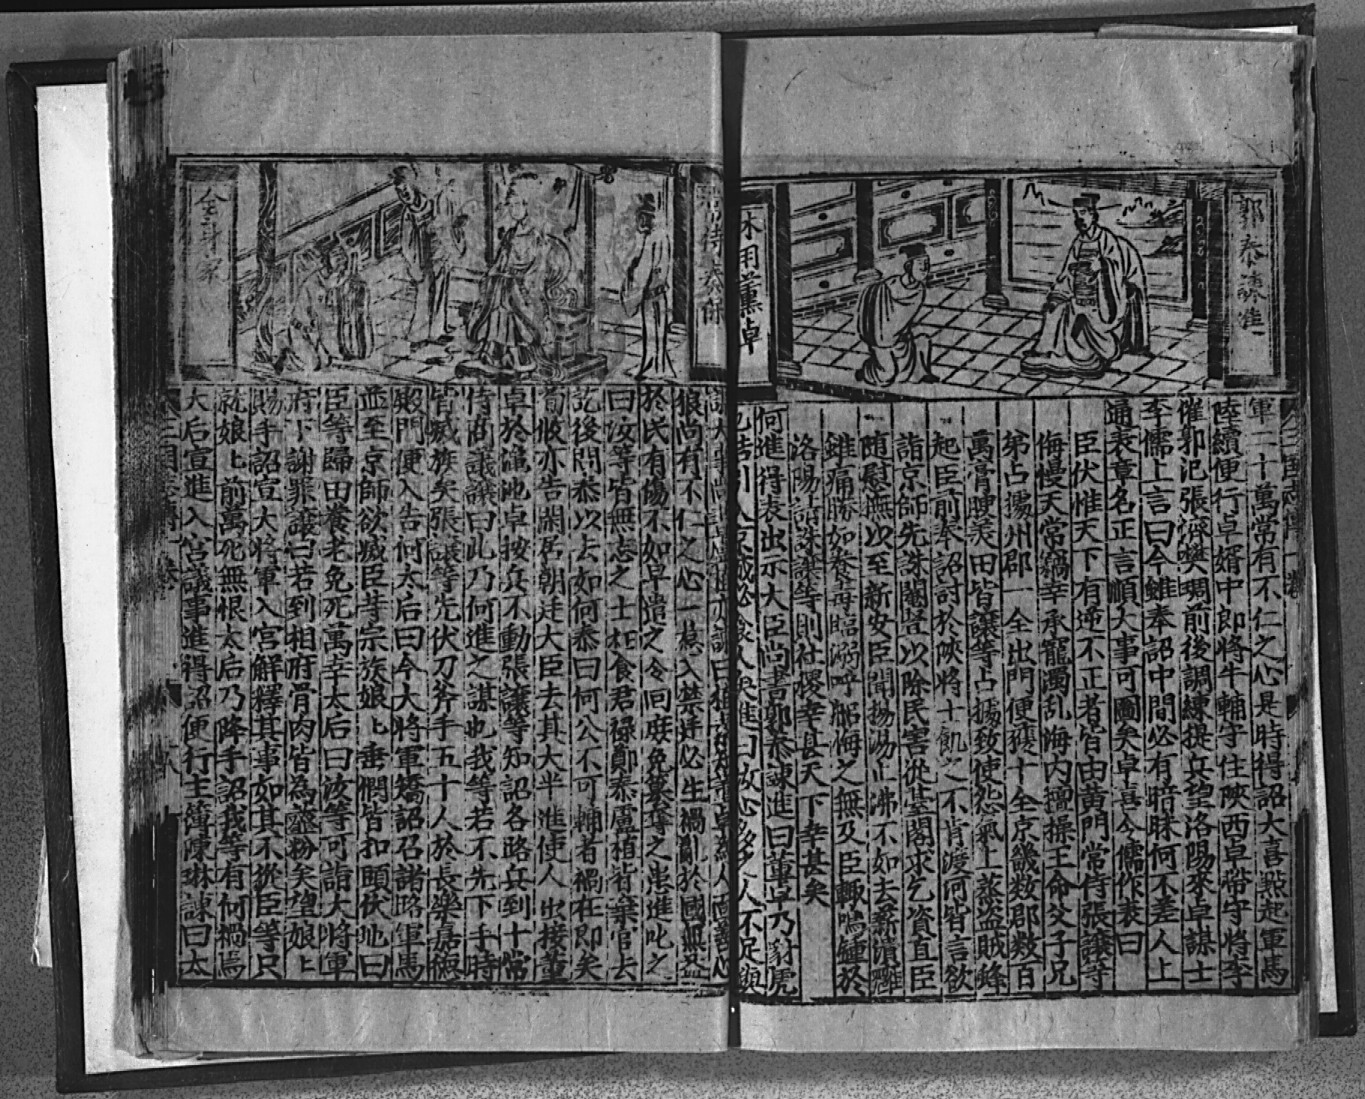 郭泰諫進
休用董卓
軍二十萬常有不仁之心是時得詔大喜㸃起軍馬
陸續便行卓婿中郎將牛輔守住陝西卓帶守將李
催郭汜張濟樊稠前後調練提兵望洛陽來卓謀士
李儒上言曰今雖奉詔中間必有暗昧何不差人上
逼表章名正言順大事可圖矣卓喜令儒作表曰
臣伏惟天下有逆不正者皆由黃門常侍張讓等
侮慢天常竊幸承寵濁乱海内擅操王命父子兄
弟占擄州郡一全出門便獲十全京畿数郡数百
萬膏腴美田皆讓等占擄致使怨氣上蒸盜賊蜂
起臣前奉詔討於陝將士飢乏不肯渡河皆言欲
詣京師先誅閹豎以除民害從䑓閣求乞資直臣
随慰撫以至新安臣聞揚湯止沸不如去薪潰癰
雖痛勝如養毒臨溺呼船悔之無及臣輙鳴鐘於
洛陽請誅讓等則社稷幸甚天下幸甚矣
何進得表出示大臣尚書郭泰諫進曰董卓乃豺虎
也若引入京城必食人矣進曰汝心多
常侍哀保
全身家
狼尚有不仁之心一槩入禁廷必生禍亂於國無益
於民有傷不如早遣之令回庶免纂奪之患進叱之
曰汝等皆無志之士枉食君祿鄭泰盧植皆棄官去
訖後問泰以去如何泰曰何公不可輔者禍在即矣
荀攸亦告閑居朝廷大臣去其大半進使人出接董
卓於澠池卓按兵不動張讓等知詔各路兵到十常
侍商議讓曰此乃何進之謀也我等若不先下手時
皆滅族矣張讓等先伏刀斧手五十人於長樂嘉德
殿門便入告何太后曰今大將軍矯詔召諸路軍馬
並至京師欲滅臣等宗族娘〻垂憫皆扣頭伏地曰
臣等歸田養老免死萬幸太后曰汝等可詣大將軍
府下謝罪讓曰若到相府骨肉皆為虀粉矣望娘〻
賜手詔宣大將軍入宮解釋其事如其不從臣等只
就娘〻前萬死無恨太后乃降手詔我等有何禍焉
大后宣進入宮議事進得詔便行主簿陳琳諫曰太